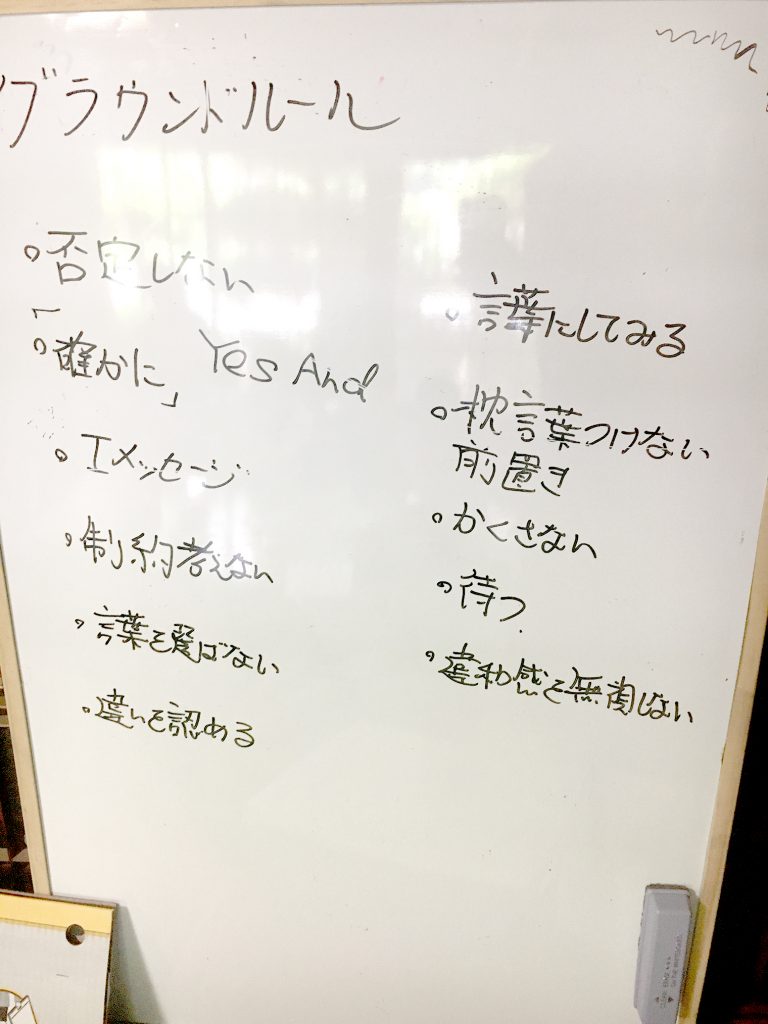 グラウンドルール
。否定しない
。「確かに」 Yes And
。Iメッセージ
。制約考えない
。言葉を選ばない
。違いを認める
。言葉にしてみる
。枕言葉つけない
前置き
。かくさない
。待つ
。違和感を無視しない